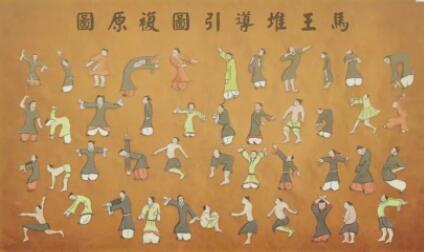 馬王堆導引圖複原圖